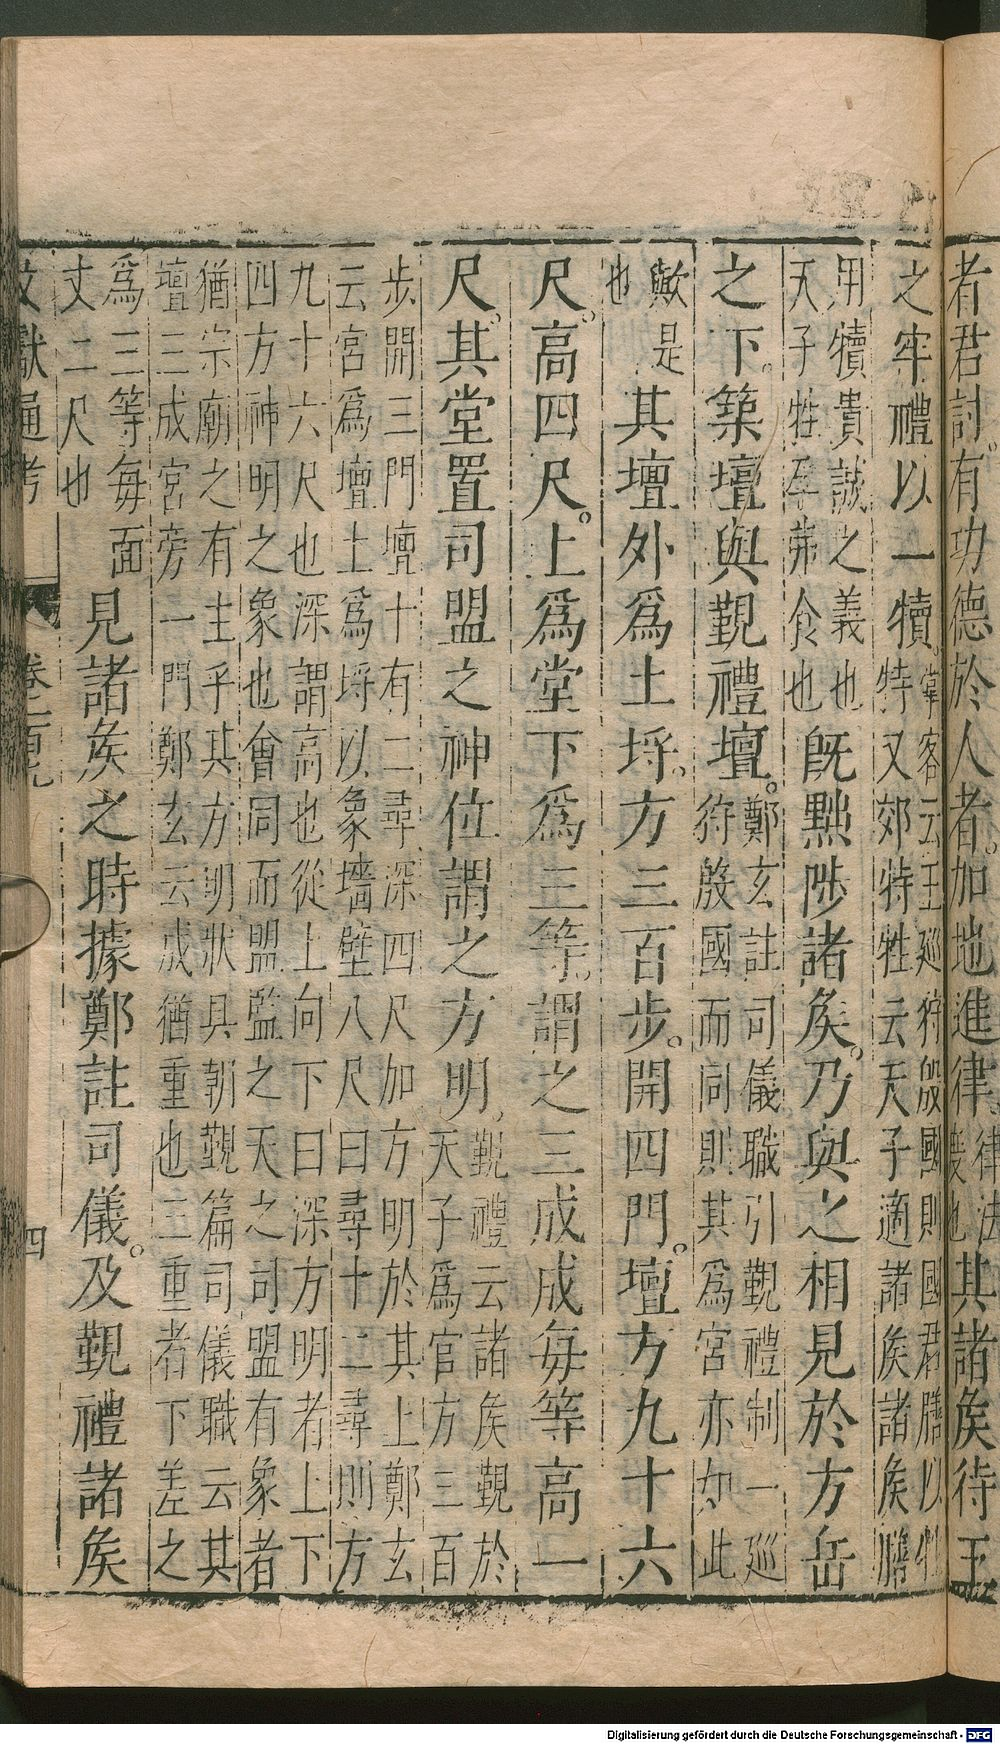 者君討。有功德於人者。加地進律。律法
也其諸侯待王
之牢禮以一犢。掌客云王廵狩殷國則國君膳以牲
特又郊特牲云天子適諸侯諸侯膳
用犢貴誠之義也
天子牲孕弗食也旣黜陟諸侯。乃與之相見於方岳
之下。築壇與覲禮壇。鄭玄註司儀職引覲禮制一廵
狩殷國而同則其為宮亦如此
歟是
也其壇外爲土埓。方三百步。開四門。壇方九十六
尺。高四尺。上爲堂下爲三等。謂之三成成每等高一
尺。其堂置司盟之神位謂之方明。覲禮云諸侯覲於
天子爲官方三百
步開三門壇十有二尋深四尺加方明於其上鄭玄
云宮爲壇土爲埓以象墻壁八尺曰尋十二尋則方
九十六尺也深謂高也從上向下曰深方明者上下
四方神明之象也會同而盟監之天之司盟有象者
猶宗廟之有主乎其方明狀具朝覲篇司儀職云其
壇三成宮旁一門鄭玄云成猶重也三重者下差之
爲三等每面
丈二尺也見諸侯之時據鄭註司儀。及覲禮諸侯
文獻通考 卷之一百九 四
Digitalisierung gefördert durch die Deutsche Forschungsgemeinschaft - DFG